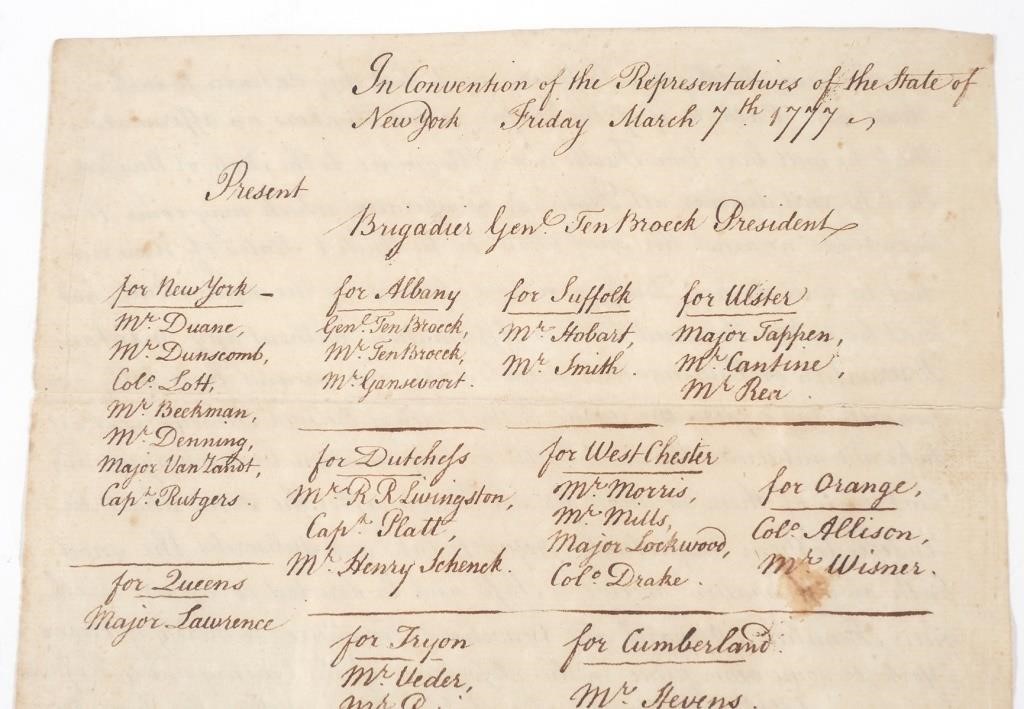 In Convention of the Representatives of the State of
New York Friday March 7th 1777
Present
Brigadier Genl. Ten Broeck President
for New York
Mr. Duane,
Mr. Dunscomb,
Colo. Lott,
Mr. Beekman,
Mr. Denning,
Major Van Zandt,
Capt. Rutgers.
for Albany
Genl. Ten Broeck,
Mr. Ten Broeck,
Mr. Gansevoort.
for Suffolk
Mr. Hobart,
Mr. Smith.
for Ulster
Major Tappen,
Mr. Cantine,
Mr. Rea.
for Queens
Major Lawrence
for Dutchess
Mr. R R Livingston,
Capt. Platt,
Mr. Henry Schenck.
for West Chester
Mr. Morris,
Mr. Mills,
Major Lockwood,
Colo. Drake.
for Orange,
Colo. Allison,
Mr. Wisner.
for Tryon
Mr. Veder,
Mr.
for Cumberland.
Mr. Stevens.